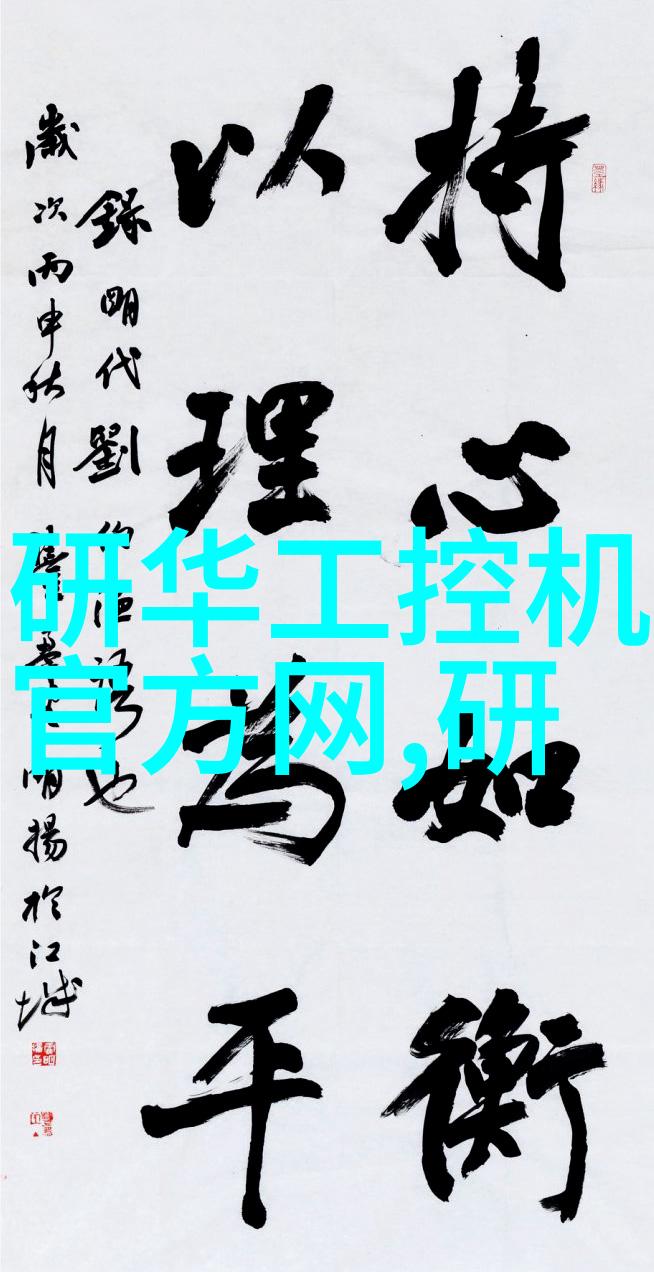 持心如衡
以理为平
錄明代劉伯温語也
歲次丙申秋月
明揚於江城
研华工控机
官方网,研